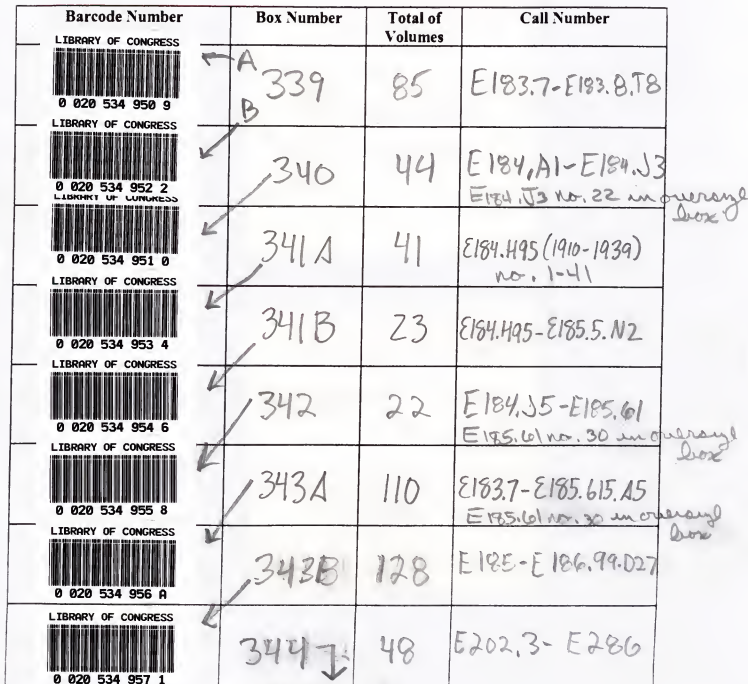 Barcode Number Box Number Total of Volumes Call Number
LIBRARY OF CONGRESS
0 020 534 950 9
A
339 85 E183.7-E183.8.T8
B
LIBRARY OF CONGRESS
0 020 534 952 2
340 44 E184.A1-E184.J3
E184.J3 no. 22 in oversize box
LIBRARY OF CONGRESS
0 020 534 951 0
341A 41 E184.H95 (1910-1939)
no. 1-41
LIBRARY OF CONGRESS
0 020 534 953 4
341B 23 E184.H95-E185.5.N2
LIBRARY OF CONGRESS
0 020 534 954 6
342 22 E184.J5-E185.61
E185.61 no. 30 in oversize box
LIBRARY OF CONGRESS
0 020 534 955 8
343A 110 E183.7-E185.615.A5
E185.61 no. 30 in oversize box
LIBRARY OF CONGRESS
0 020 534 956 A
343B 128 E185-E186.99.D27
LIBRARY OF CONGRESS
0 020 534 957 1
344 48 E202.3-E286